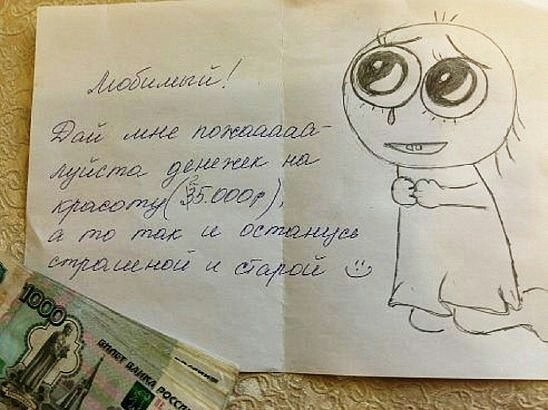 Любимый!
Дай мне пожааааа-
луйста денежек на
красоту (35.000р),
а то так и останусь
страшной и старой ☺
1000
БИЛЕТ БАНКА РОССИ